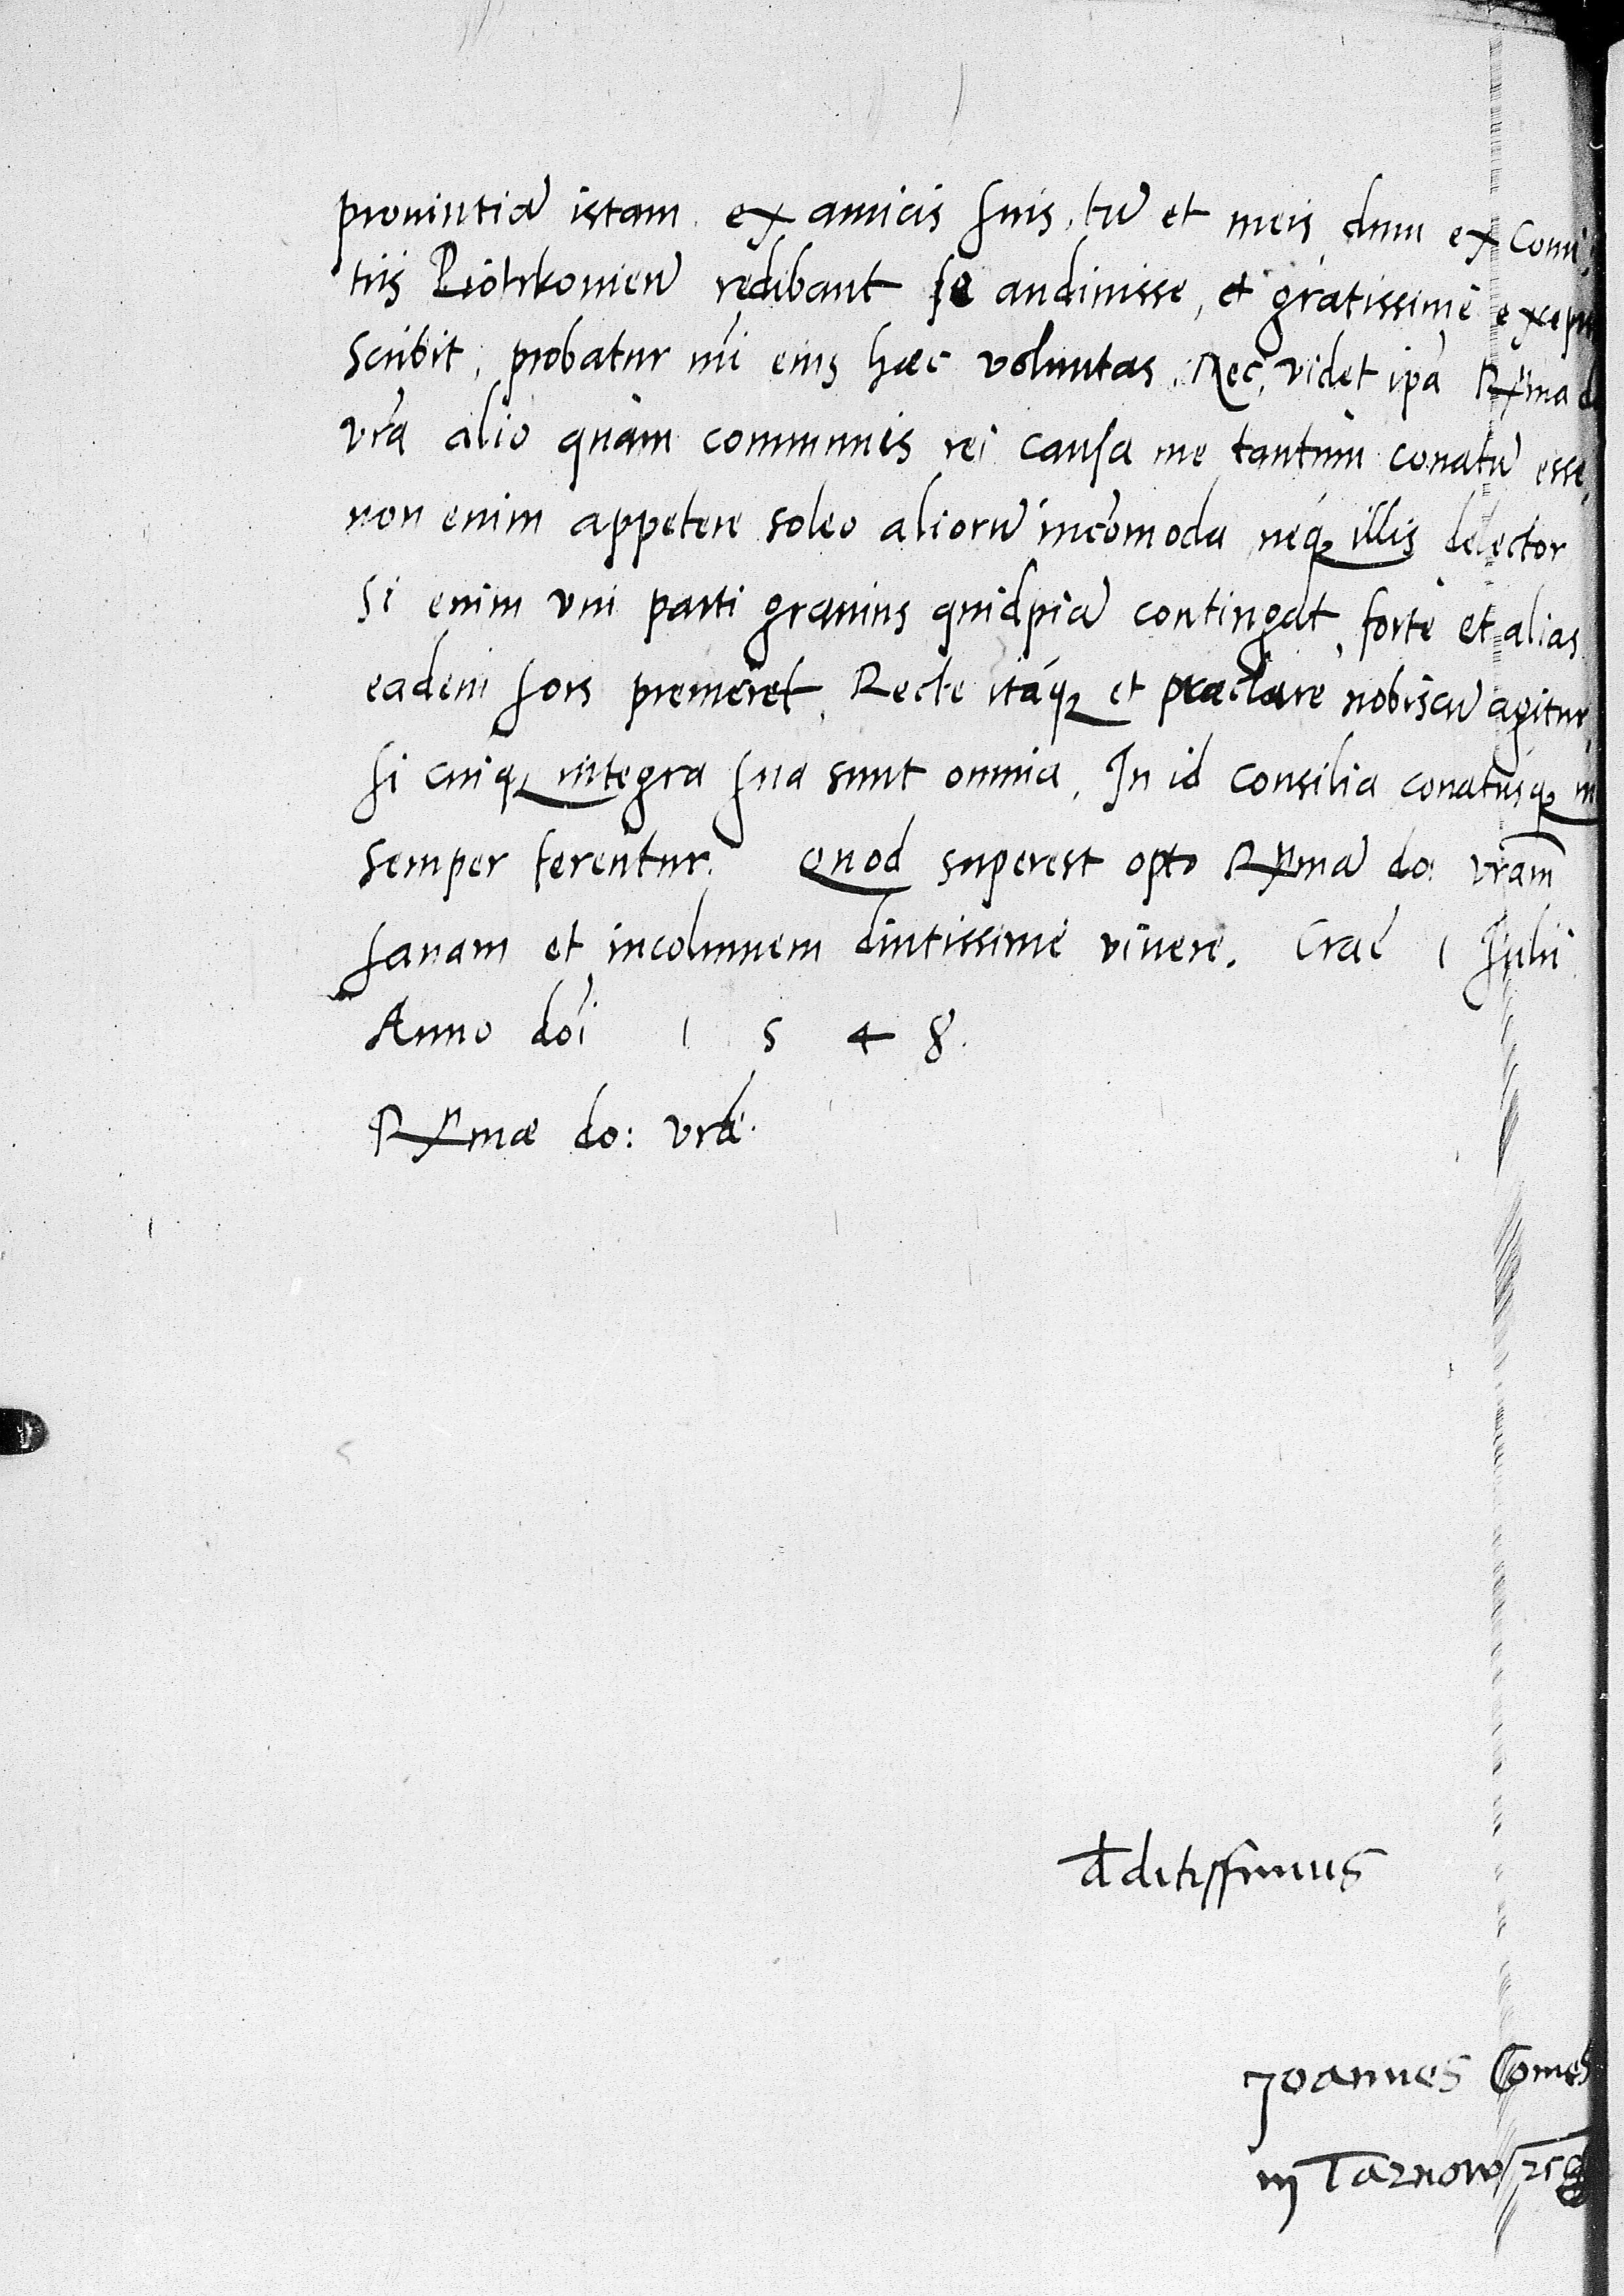 prouintiã istam ex amicis suis, tũ et meis, dum ex Comi
tiis Piotrkouień redibant se audiuisse, et gratissimè
scribit, probatur mi eius haec voluntas. Nec videt ipã Rx̃ma d
vrã alio quàm communis rei causa me tantum conatũ esse,
non enim appetere soleo aliorũ incõmoda neq́ illis delector
si enim vni parti grauius quidpiã contingat, fortè et alias
eadem sors premeret. Recte itaq́ et praeclarè nobiscũ agitur,
si cuiq integra sua sunt omnia. In id consilia conatusq
semper ferentur. Quod superest opto Rx̃mã do: vrãm
sanam et incolumem diutissimè viuere. Crać 1 Julii
Anno doi 1 5 4 8.
Rx̃mae do: vrae
dditissimus
Joannes Comes
in Tarnow